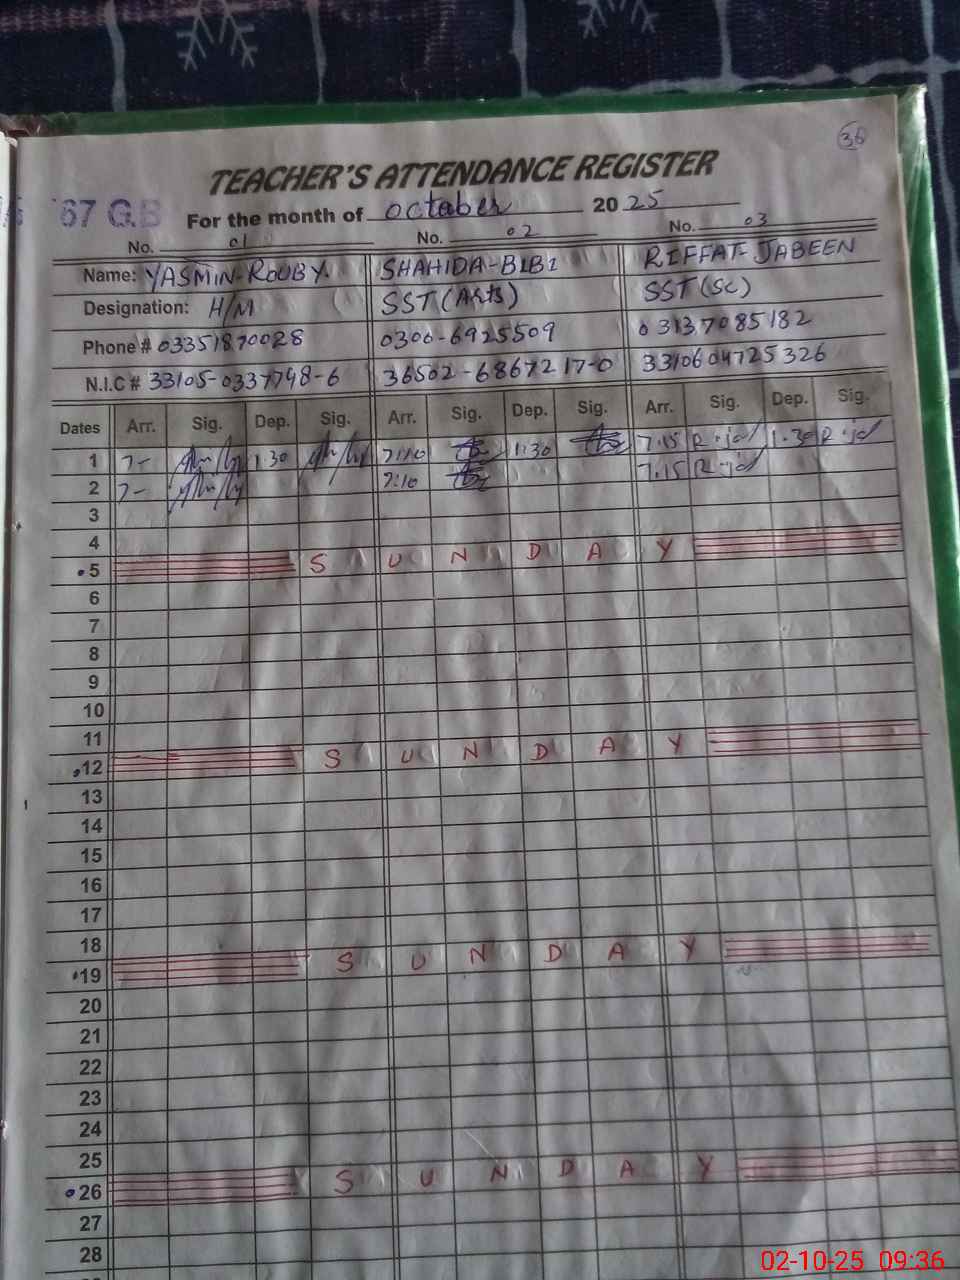 36
TEACHER'S ATTENDANCE REGISTER
67 G.B
For the month of october 2025
No. 01 No. 02 No. 03
Name: YASMIN-ROUBY. SHAHIDA-BIBI RIFFAT-JABEEN
Designation: H/M SST(Arts) SST(SC)
Phone # 03351870028 0306-6925509 03137085182
N.I.C # 33105-0337748-6 36502-6867217-0 3310604725326
Dates Arr. Sig. Dep. Sig. Arr. Sig. Dep. Sig. Arr. Sig. Dep. Sig.
1 7- 1:30 7:10 1:30 7:15 1.30
2 7- 7:10 7.15
3
4
5 SUNDAY
6
7
8
9
10
11
12 SUNDAY
13
14
15
16
17
18
19 SUNDAY
20
21
22
23
24
25
26 SUNDAY
27
28
02-10-25 09:36